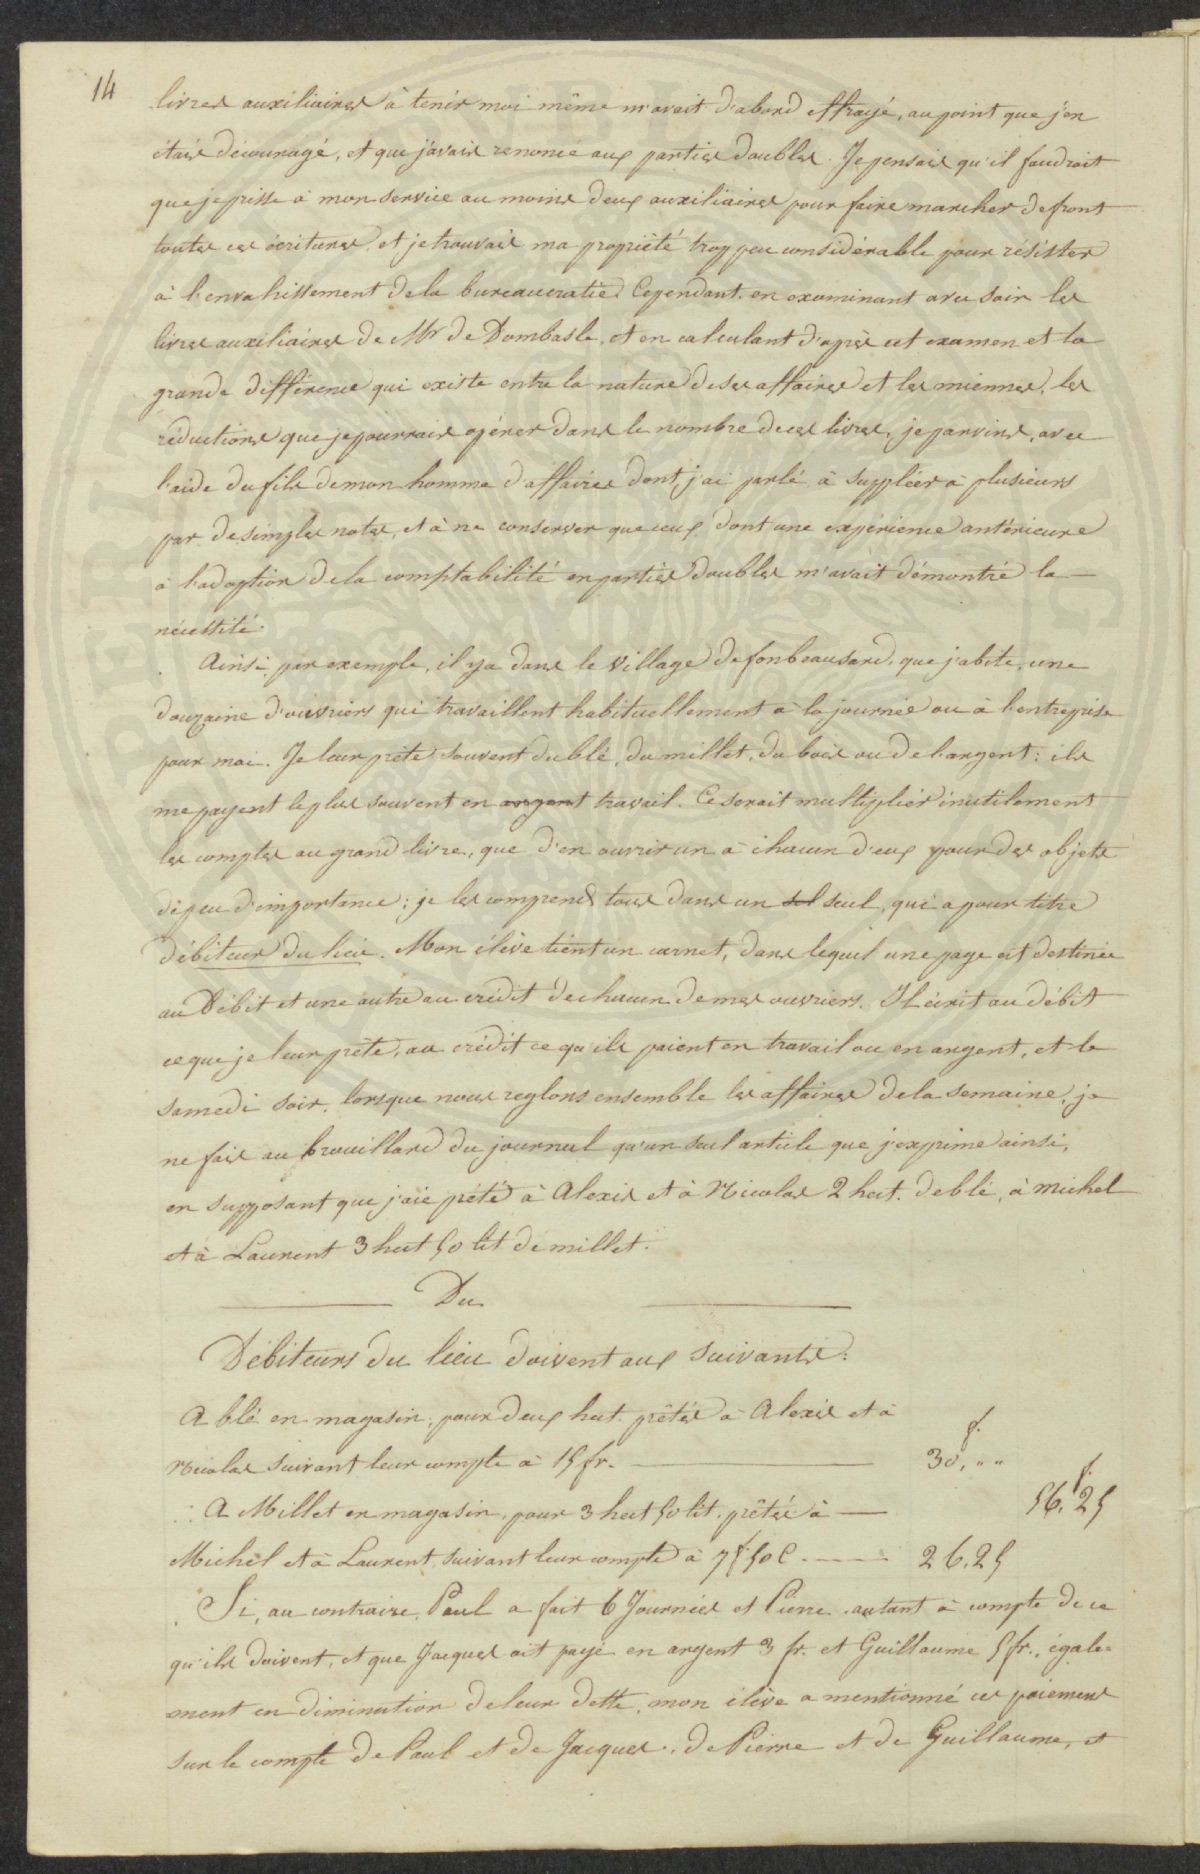 14
livres auxiliaires à tenir moi même m'avait d'abord effrayé, au point que j'en
étais découragé, et que j'avais renoncé aux parties doubles. Je pensais qu'il faudroit
que je prisse à mon service au moins deux auxiliaires pour faire marcher de front
toutes ces écritures, et je trouvais ma propriété trop peu considérable pour résister
à l'envahissement de la bureaucratie. Cependant, en examinant avec soin les
livres auxiliaires de Mr de Dombasle, et en calculant d'après cet examen et la
grande différence qui existe entre la nature de ses affaires et les miennes, les
réductions que je pourrais opérer dans le nombre de ces livres, je parvins, avec
l'aide du fils de mon homme d'affaires dont j'ai parlé, à suppléer à plusieurs
par de simples notes, et à ne conserver que ceux dont une expérience antérieure
à l'adoption de la comptabilité en parties doubles m'avait démontré la —
nécessité.
Ainsi, par exemple, il y a dans le village de fonbeausard, que j'abite, une
douzaine d'ouvriers qui travaillent habituellement à la journée ou à l'entreprise
pour moi. Je leur prête souvent du blé, du millet, du bois ou de l'argent : ils
me payent le plus souvent en argent travail. Ce serait multiplier inutilement
les comptes au grand livre, que d'en ouvrir un à chacun d'eux pour des objets
de peu d'importance ; je les comprends tous dans un sel seul, qui a pour titre
débiteur du lieu. Mon élève tient un carnet, dans lequel une page est destinée
au Débit et une autre au crédit de chacun de mes ouvriers. Il écrit au débit
ce que je leur prête, au crédit ce qu'ils paient en travail ou en argent, et le
samedi soir, lorsque nous reglons ensemble les affaires de la semaine, je
ne fais au brouillard du journal qu'un seul article que j'exprime ainsi,
en supposant que j'aie prêté à Alexis et à Nicolas 2 hect. de blé, à Michel
et à Laurent 3 hect 50 lit de millet.
Du
Débiteurs du lieu doivent aux suivants :
A blé en magasin, pour deux hect. prêtés à Alexis et à f.
Nicolas suivant leur compte à 15 fr. — 30, " "
A Millet en magasin, pour 3 hect 50 lit. prêtés à — f. 56. 25
Michel et à Laurent, suivant leur compte à 7 f 50 c. — 26.25
Si, au contraire, Paul a fait 6 Journées et Pierre autant à compte de ce
qu'ils doivent, et que Jacques ait payé en argent 3 fr. et Guillaume 5 fr., égale=
ment en diminution de leur dette, mon élève a mentionné ces paiemens
sur le compte de Paul et de Jacques, de Pierre et de Guillaume, et